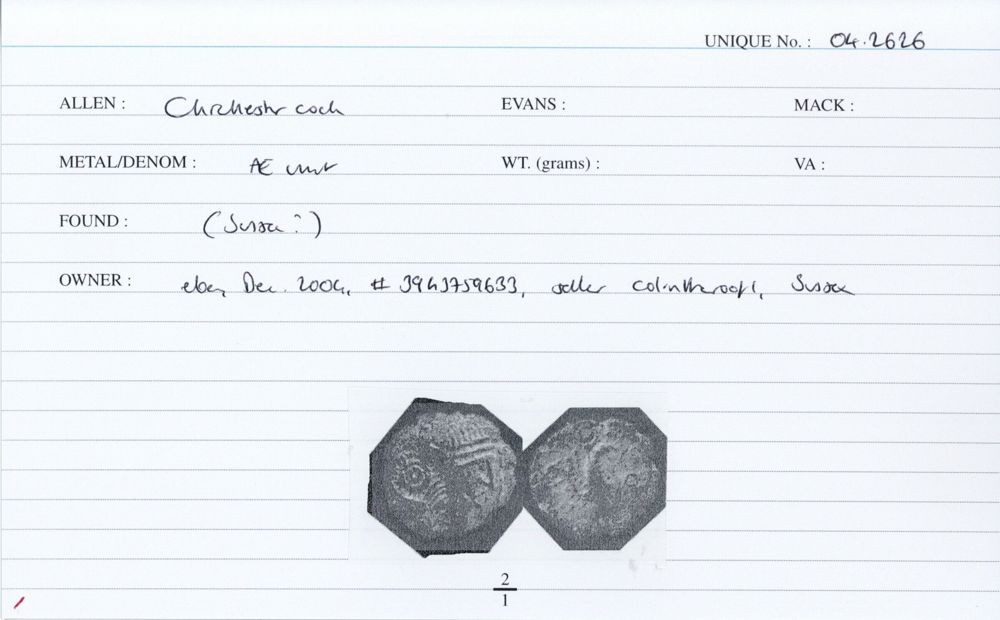 UNIQUE No. : 04.2626
ALLEN : Chichester cock EVANS : MACK :
METAL/DENOM : Æ unit WT. (grams) : VA :
FOUND : (Sussex?)
OWNER : ebay Dec. 2004, # 3943759633, seller Sussex
2
1